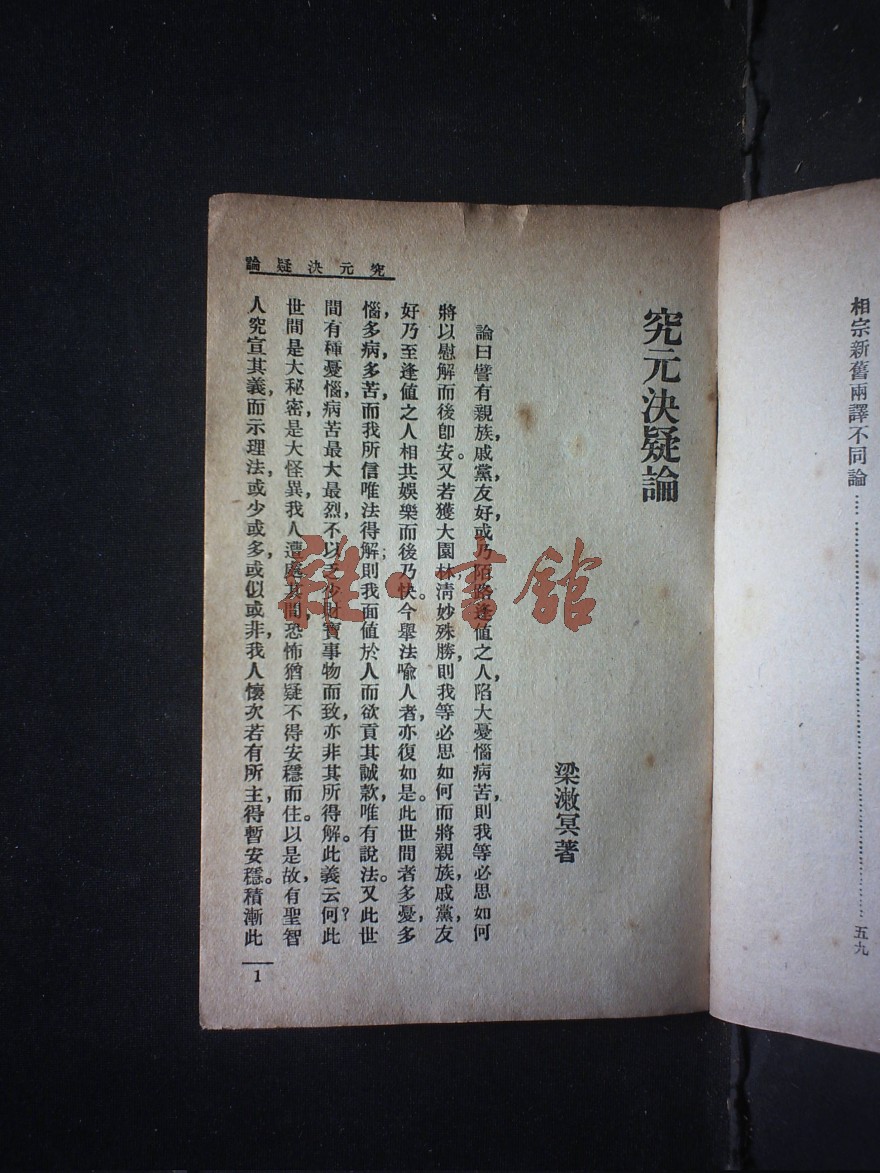 相宗新舊兩譯不同論 ………………………………………… 五九
究元決疑論
究元決疑論
梁漱冥著
論曰譬有親族，戚黨友好，或乃陌路逢值之人，陷大憂惱病苦，則我等必思如何
將以慰解而後卽安。又若獲大園林，淸妙殊勝，則我等必思如何而將親族，戚黨，友
好乃至逢值之人相共娛樂而後乃快。今舉法喩人者，亦復如是。此世間者多憂，多
惱，多病，多苦，而我所信唯法得解；則我面値於人而欲貢其誠款，唯有說法。又此世
間有種憂惱，病苦最大最烈，不以乏少財寶事物而致，亦非其所得解。此義云何？此
世間是大秘密，是大怪異，我人遭處其間，恐怖猶疑不得安穩而住。以是故，有聖智
人究宣其義，而示理法，或少或多，或似或非，我人懷次若有所主，得暫安穩。積漸此
1
雜·書館